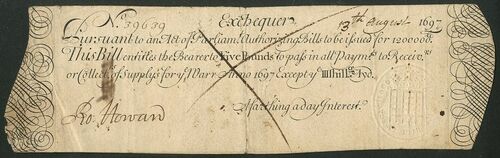 No. 39639 Exchequer 13th August 1697
Pursuant to an Act of Parliamt. Authorizing Bills to be issued for 1200000
This Bill entitles the Bearer to Five Pounds to pass in all Paymts. to Receivrs.
or Collectrs. of Supplys for ye. Warr Anno 1697 Except ye. IIIshills. Ayd.
A Farthing a day Interest.
Ro: Howard